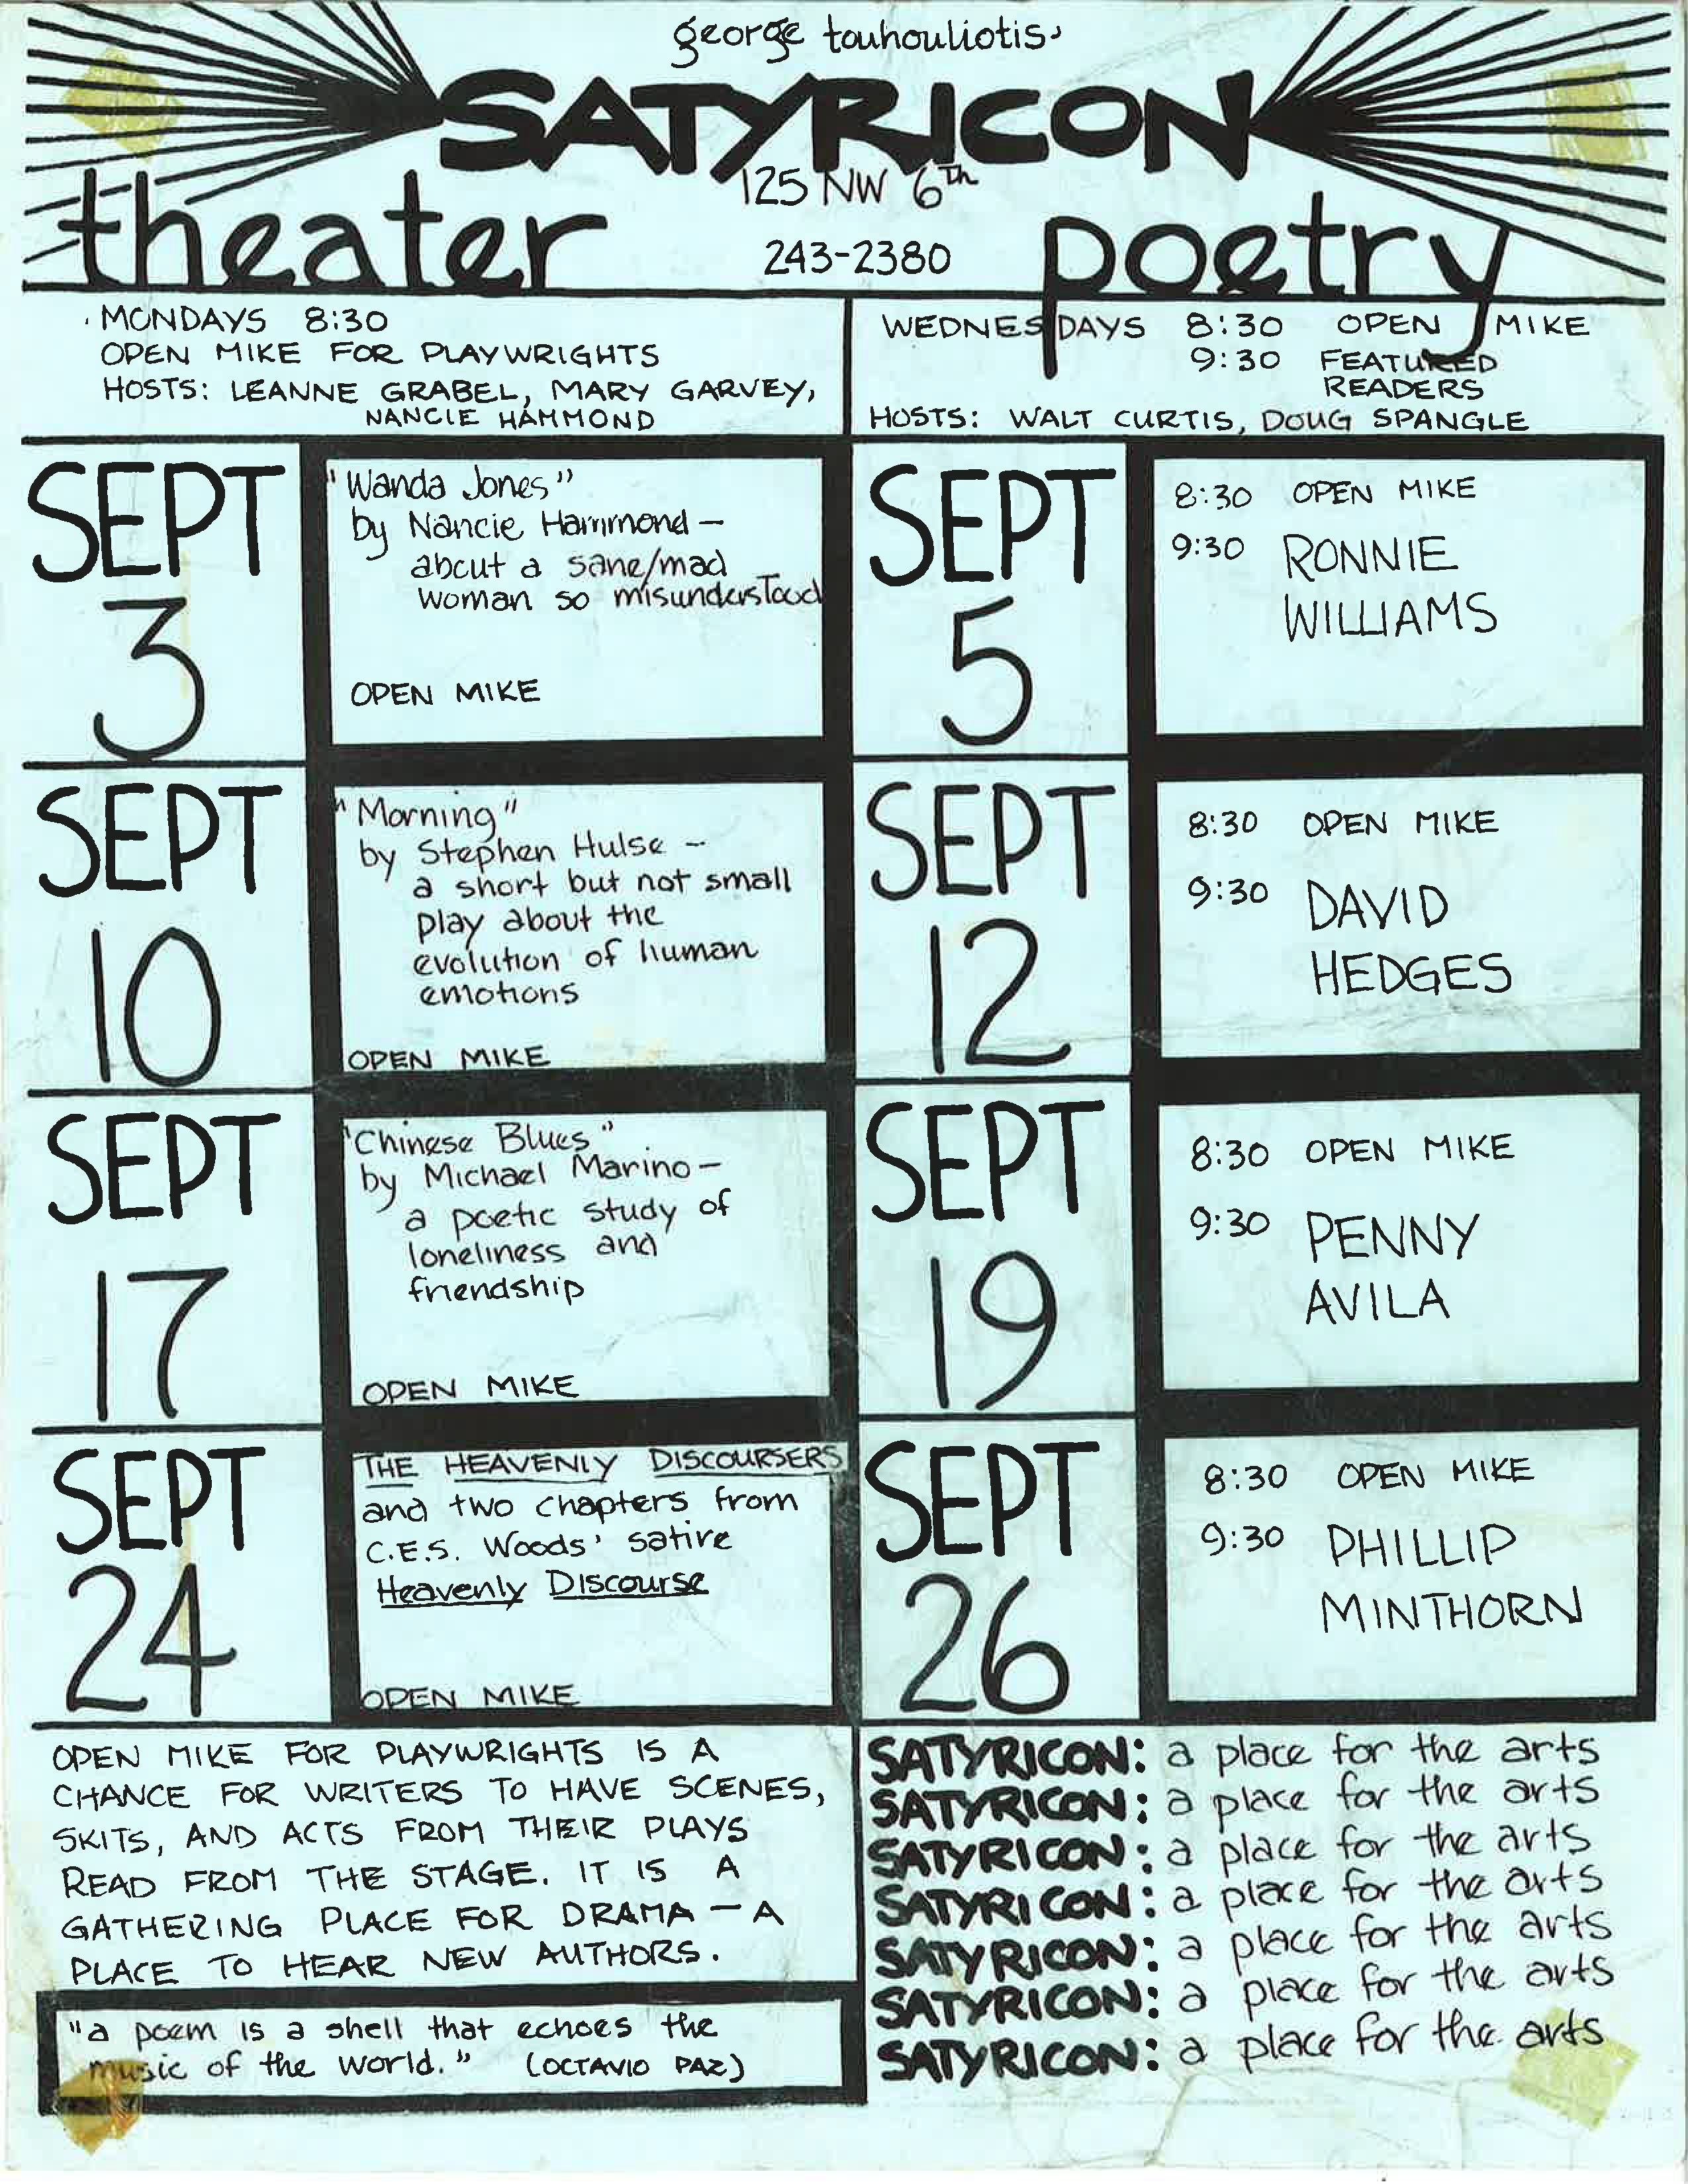 george touhouliotis'
SATYRICON
125 NW 6th
243-2380
theater
poetry
MONDAYS 8:30
OPEN MIKE FOR PLAYWRIGHTS
HOSTS: LEANNE GRABEL, MARY GARVEY,
NANCIE HAMMOND
WEDNESDAYS 8:30 OPEN MIKE
9:30 FEATURED
READERS
HOSTS: WALT CURTIS, DOUG SPANGLE
SEPT
3
"Wanda Jones"
by Nancie Hammond —
about a sane/mad
woman so misunderstood
OPEN MIKE
SEPT
5
8:30 OPEN MIKE
9:30 RONNIE
WILLIAMS
SEPT
10
"Morning"
by Stephen Hulse —
a short but not small
play about the
evolution of human
emotions
OPEN MIKE
SEPT
12
8:30 OPEN MIKE
9:30 DAVID
HEDGES
SEPT
17
"Chinese Blues"
by Michael Marino —
a poetic study of
loneliness and
friendship
OPEN MIKE
SEPT
19
8:30 OPEN MIKE
9:30 PENNY
AVILA
SEPT
24
THE HEAVENLY DISCOURSERS
and two chapters from
C.E.S. Woods' satire
Heavenly Discourse
OPEN MIKE
SEPT
26
8:30 OPEN MIKE
9:30 PHILLIP
MINTHORN
OPEN MIKE FOR PLAYWRIGHTS IS A
CHANCE FOR WRITERS TO HAVE SCENES,
SKITS, AND ACTS FROM THEIR PLAYS
READ FROM THE STAGE. IT IS A
GATHERING PLACE FOR DRAMA — A
PLACE TO HEAR NEW AUTHORS.
"a poem is a shell that echoes the
music of the world." (OCTAVIO PAZ)
SATYRICON: a place for the arts
SATYRICON: a place for the arts
SATYRICON: a place for the arts
SATYRICON: a place for the arts
SATYRICON: a place for the arts
SATYRICON: a place for the arts
SATYRICON: a place for the arts